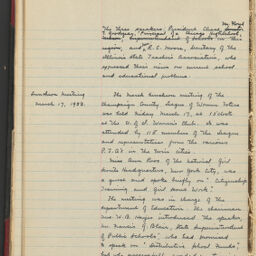 The three speakers, President Chase, 
Y. Goodyear, Principal of a Chicago High School,
region, and R. C. Moore, Secretary of the
Illinois State Teachers Association, who
expressed their views on current school
and educational problems.
Luncheon Meeting
March 17, 1933.
The March luncheon meeting of the
Champaign County League of Women Voters
was held Friday March 17, at 1 o'clock
at the U. of I. Woman's Club. It was
attended by 115 members of the League
and representatives from the various
P.T.A's in the twin cities.
Miss Ann Roos of the National Girl
Scouts Headquarters, New York City, was
a guest and spoke briefly on "Citizenship
Training and Girl Scout Work."
The meeting was in charge of the
department of Education. The chairman
Mrs. W. B. Hayes introduced the speaker,
Mr. Francis G. Blair, State Superintendent
of Public Schools, who had promised
to speak on "Distributive School Funds",
but who